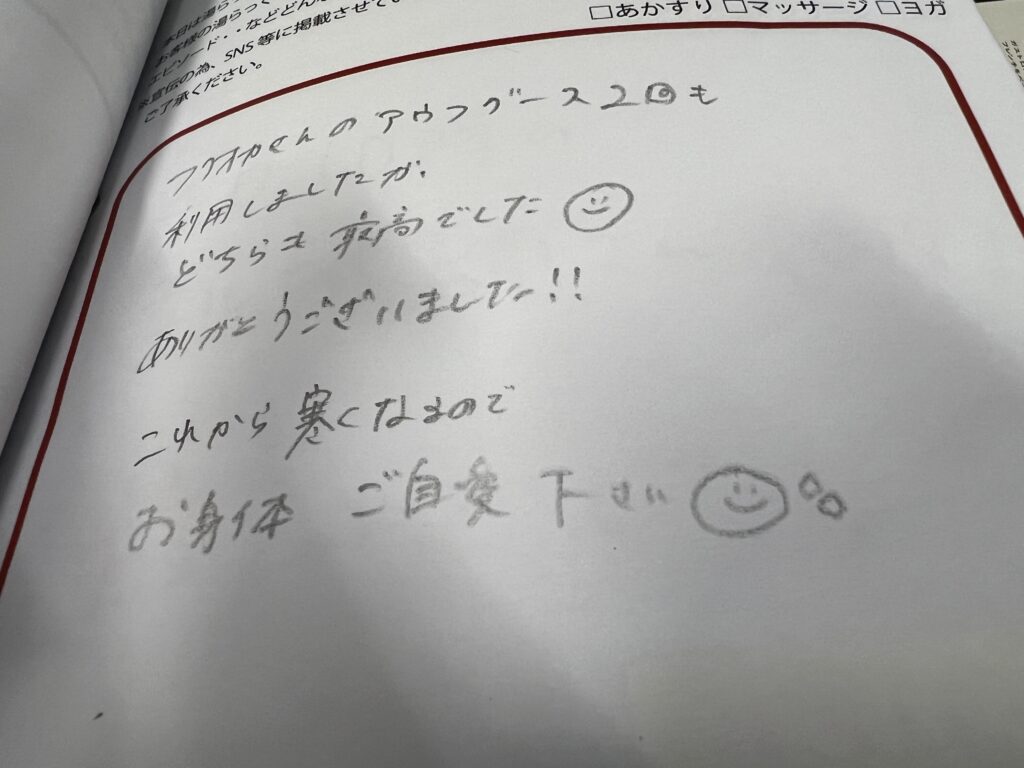 本日は湯らっ
お客様の湯らって
エピソード・・などどん
宣伝の為、SNS 等に掲載させて
ご了承ください。
□あかすり □マッサージ □ヨガ
フクオカさんの アウフグース 2回も
利用しましたが、
どちらも 最高でした
ありがとうございました!!
これから 寒くなるので
お身体 ご自愛 下さい